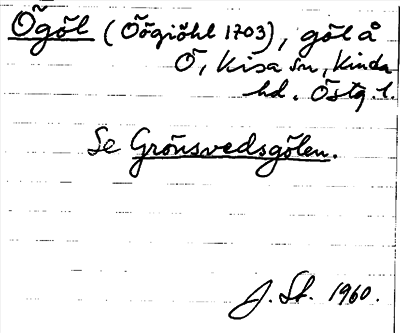 Ögöl (Öögiöhl 1703), göl å
Ö, Kisa sn, Kinda
hd. Östg. l.
Se Grönsvedsgölen.
J. St. 1960.